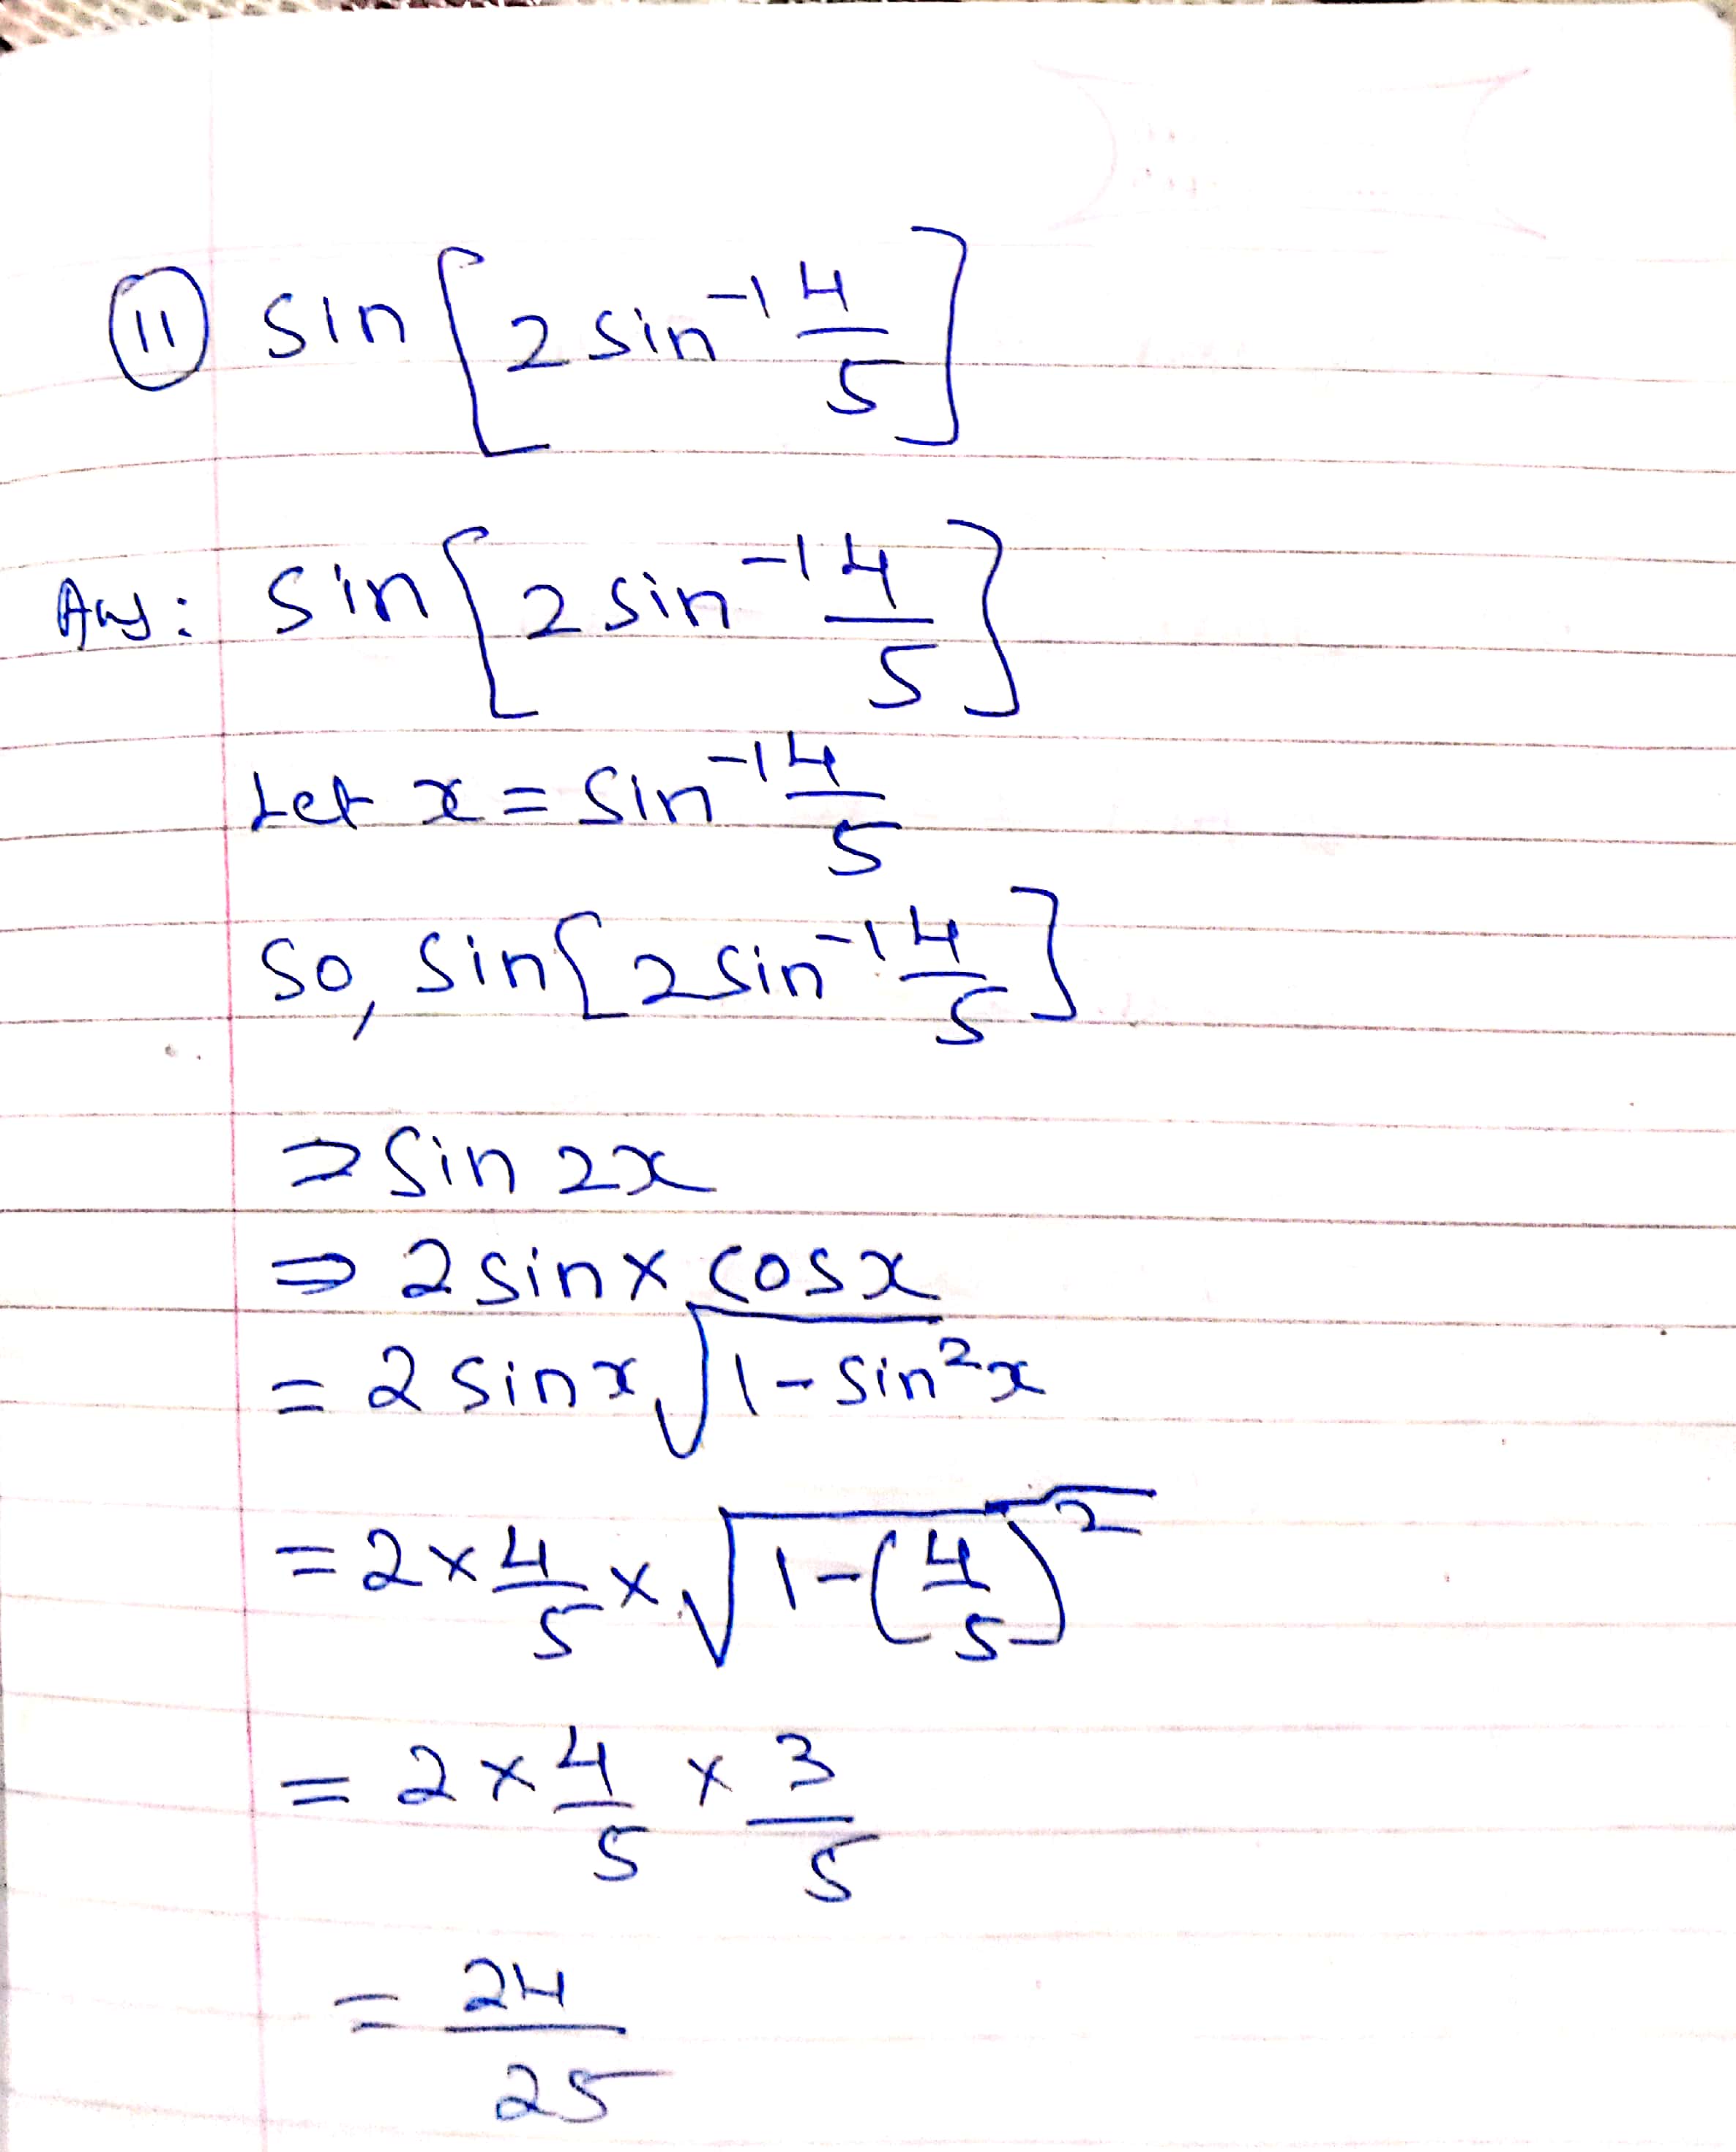 (11) sin [2 sin⁻¹ 4/5]
Ans: sin [2 sin⁻¹ 4/5]
Let x = sin⁻¹ 4/5
So, sin [2 sin⁻¹ 4/5]
⇒ sin 2x
⇒ 2 sinx cosx
= 2 sinx √(1 - sin²x)
= 2 × 4/5 × √(1 - (4/5)²)
= 2 × 4/5 × 3/5
= 24/25